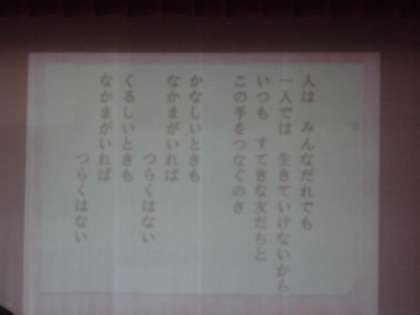 人は　みんなだれでも
一人では　生きていけないから
いつも　すてきな友だちと
この手をつなぐのさ
かなしいときも
なかまがいれば
つらくはない
くるしいときも
なかまがいれば
つらくはない